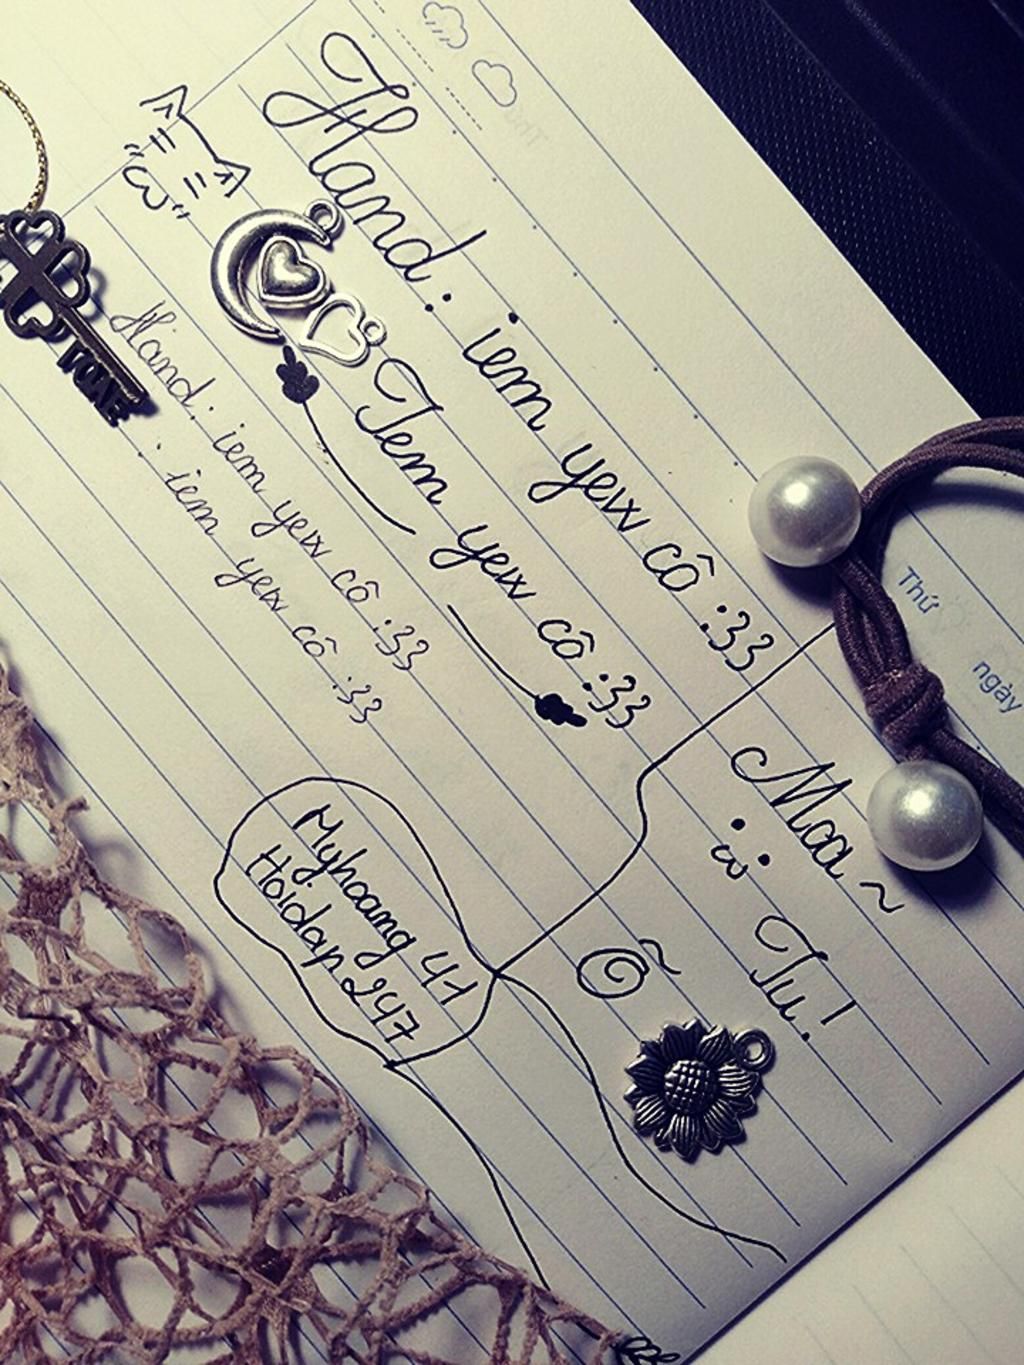 Hand: iem yeix cô :33
Iem yeix cô :33
Hand: iem yeix cô :33
: iem yeix cô :33
Moa ~
Tu!
Myhoang 41
Hoidap247
Thứ
ngày